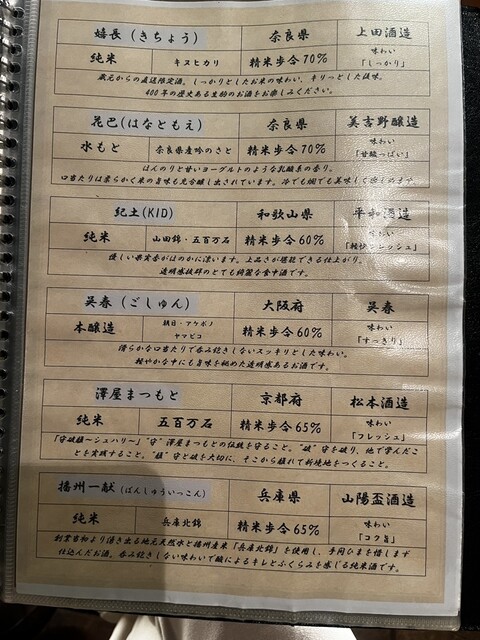 嬉長(きちょう) 奈良県 上田酒造
純米 キヌヒカリ 精米歩合70% 味わい「しっかり」
蔵元からの直送限定酒。しっかりとしたお米の味わい、キリっとした後味。
400年の歴史ある生駒のお酒をお楽しみください。
花巴(はなともえ) 奈良県 美吉野醸造
水もと 奈良県産吟のさと 精米歩合70% 味わい「甘酸っぱい」
ほんのりと甘いヨーグルトのような乳酸系の香り。
口当たりは柔らかく米の旨味も充分醸し出されています。冷でも燗でも美味しく
紀土(KID) 和歌山県 平和酒造
純米 山田錦・五百万石 精米歩合60% 味わい「軽快フレッシュ」
優しい果実香がほのかに漂います。上品さが堪能できる仕上がり。
透明感抜群のとても綺麗な食中酒です。
呉春(ごしゅん) 大阪府 呉春
本醸造 朝日・アケボノ ヤマビコ 精米歩合60% 味わい「すっきり」
滑らかな口当たりで呑み飽きしないスッキリとした味わい。
軽やかな中にも旨味を秘めた透明感あるお酒です。
澤屋まつもと 京都府 松本酒造
純米 五百万石 精米歩合65% 味わい「フレッシュ」
「守破離～シュハリ～」"守"澤屋まつもとの伝統を守ること。"破"守を破り、他で学んだこ
とを実践すること。"離"守と破を大切に、そこから離れて新境地をつくること。
播州一献(ばんしゅういっこん) 兵庫県 山陽盃酒造
純米 兵庫北錦 精米歩合65% 味わい「コク旨」
創業当初より湧き出る地元天然水と播州産米「兵庫北錦」を使用し、手間ひまを惜しまず
仕込んだお酒。呑み飽きしない味わいで酸によるキレとふくらみを感じる純米酒です。